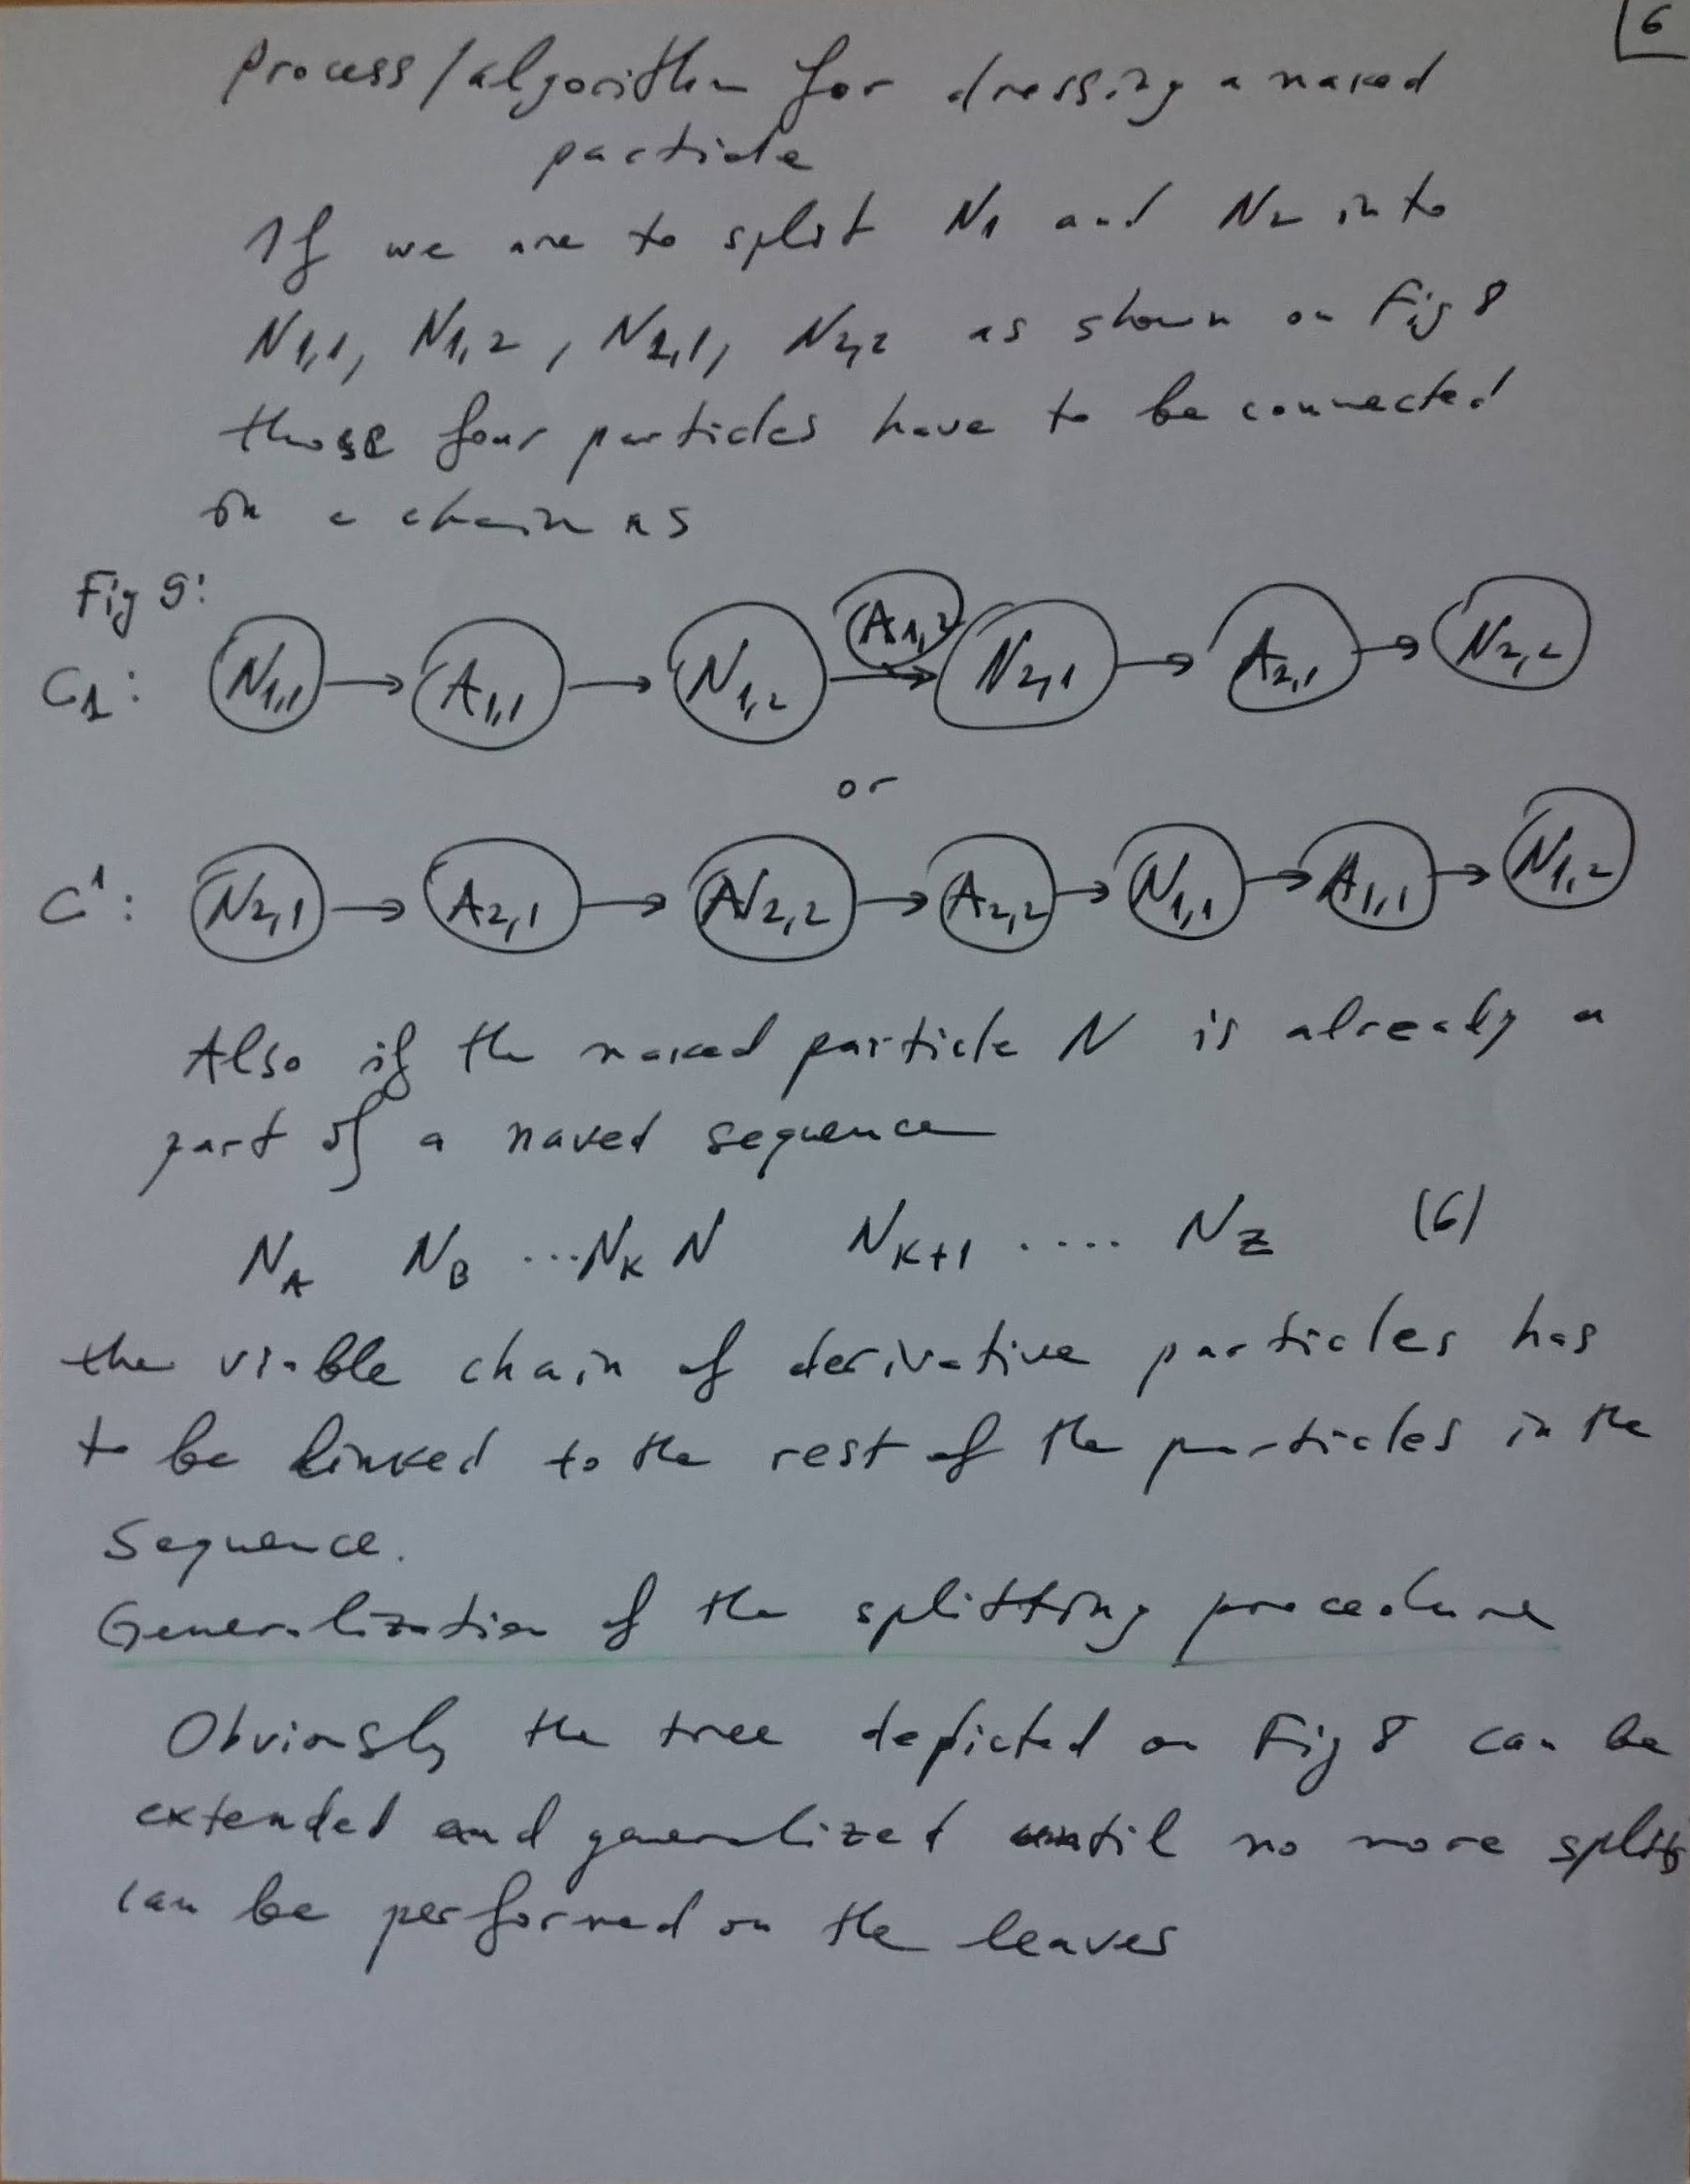 6
Process/algorithm for dressing a naked
particle
If we are to split N1 and N2 into
N1,1, N1,2, N2,1, N2,2 as shown on Fig 8
those four particles have to be connected
on a chain as
Fig 9:
C1: N1,1 → A1,1 → N1,2 → A1,2 N2,1 → A2,1 → N2,2
or
C1: N2,1 → A2,1 → N2,2 → A2,2 → N1,1 → A1,1 → N1,2
Also if the naked particle N is already a
part of a naked sequence
NA NB ...NK N NK+1 .... NZ (6)
the viable chain of derivative particles has
to be linked to the rest of the particles in the
sequence.
Generalization of the splitting procedure
Obviously the tree depicted on Fig 8 can be
extended and generalized until no more splits
can be performed on the leaves